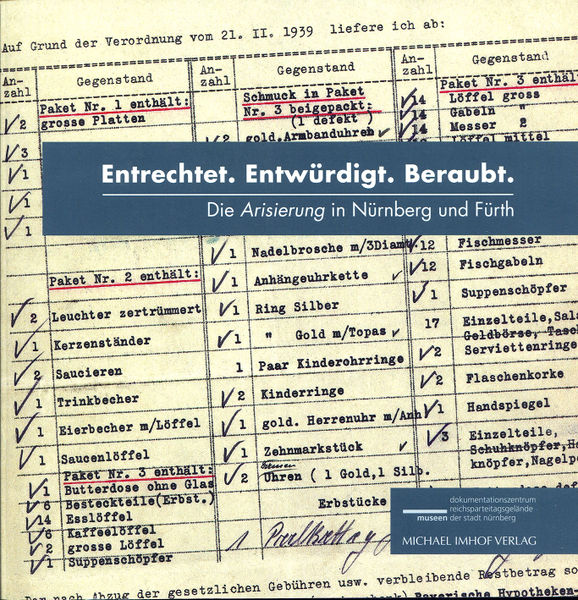 Auf Grund der Verordnung vom 21. II. 1939 liefere ich ab:
An-
zahl
Gegenstand
An-
zahl
Gegenstand
An-
zahl
Gegenstand
Paket Nr. 1 enthält:
2 grosse Platten
3
1
1
1
Paket Nr. 2 enthält:
2 Leuchter zertrümmert
1 Kerzenständer
2 Saucieren
1 Trinkbecher
1 Eierbecher m/Löffel
1 Saucenlöffel
Paket Nr. 3 enthält:
1 Butterdose ohne Glas
6 Besteckteile(Erbst.)
14 Esslöffel
6 Kaffeelöffel
2 grosse Löffel
1 Suppenschöpfer
Schmuck in Paket
Nr. 3 beigepackt:
(1 defekt )
2 gold.Armbanduhren
1 Nadelbrosche m/3Diamt.
1 Anhängeuhrkette
1 Ring Silber
1 " Gold m/Topas
1 Paar Kinderohrringe
2 Kinderringe
1 gold. Herrenuhr m/Anh
1 Zehnmarkstück
2 Uhren ( 1 Gold,1 Silb.
Erbstücke
1
Paket Nr. 3 enthäl
14 Löffel gross
14 Gabeln "
14 Messer 2
Löffel mittel
12 Fischmesser
12 Fischgabeln
1 Suppenschöpfer
17 Einzelteile,Sal
Geldbörse, Tasch
2 Serviettenringe
2 Flaschenkorke
1 Handspiegel
3 Einzelteile,
Schuhknöpfer,H
knöpfer,Nagelp
Entrechtet. Entwürdigt. Beraubt.
Die Arisierung in Nürnberg und Fürth
dokumentationszentrum
reichsparteitagsgelände
museen der stadt nürnberg
MICHAEL IMHOF VERLAG
Der nach Abzug der gesetzlichen Gebühren usw. verbleibende Restbetrag so
Bayerische Hypotheken-